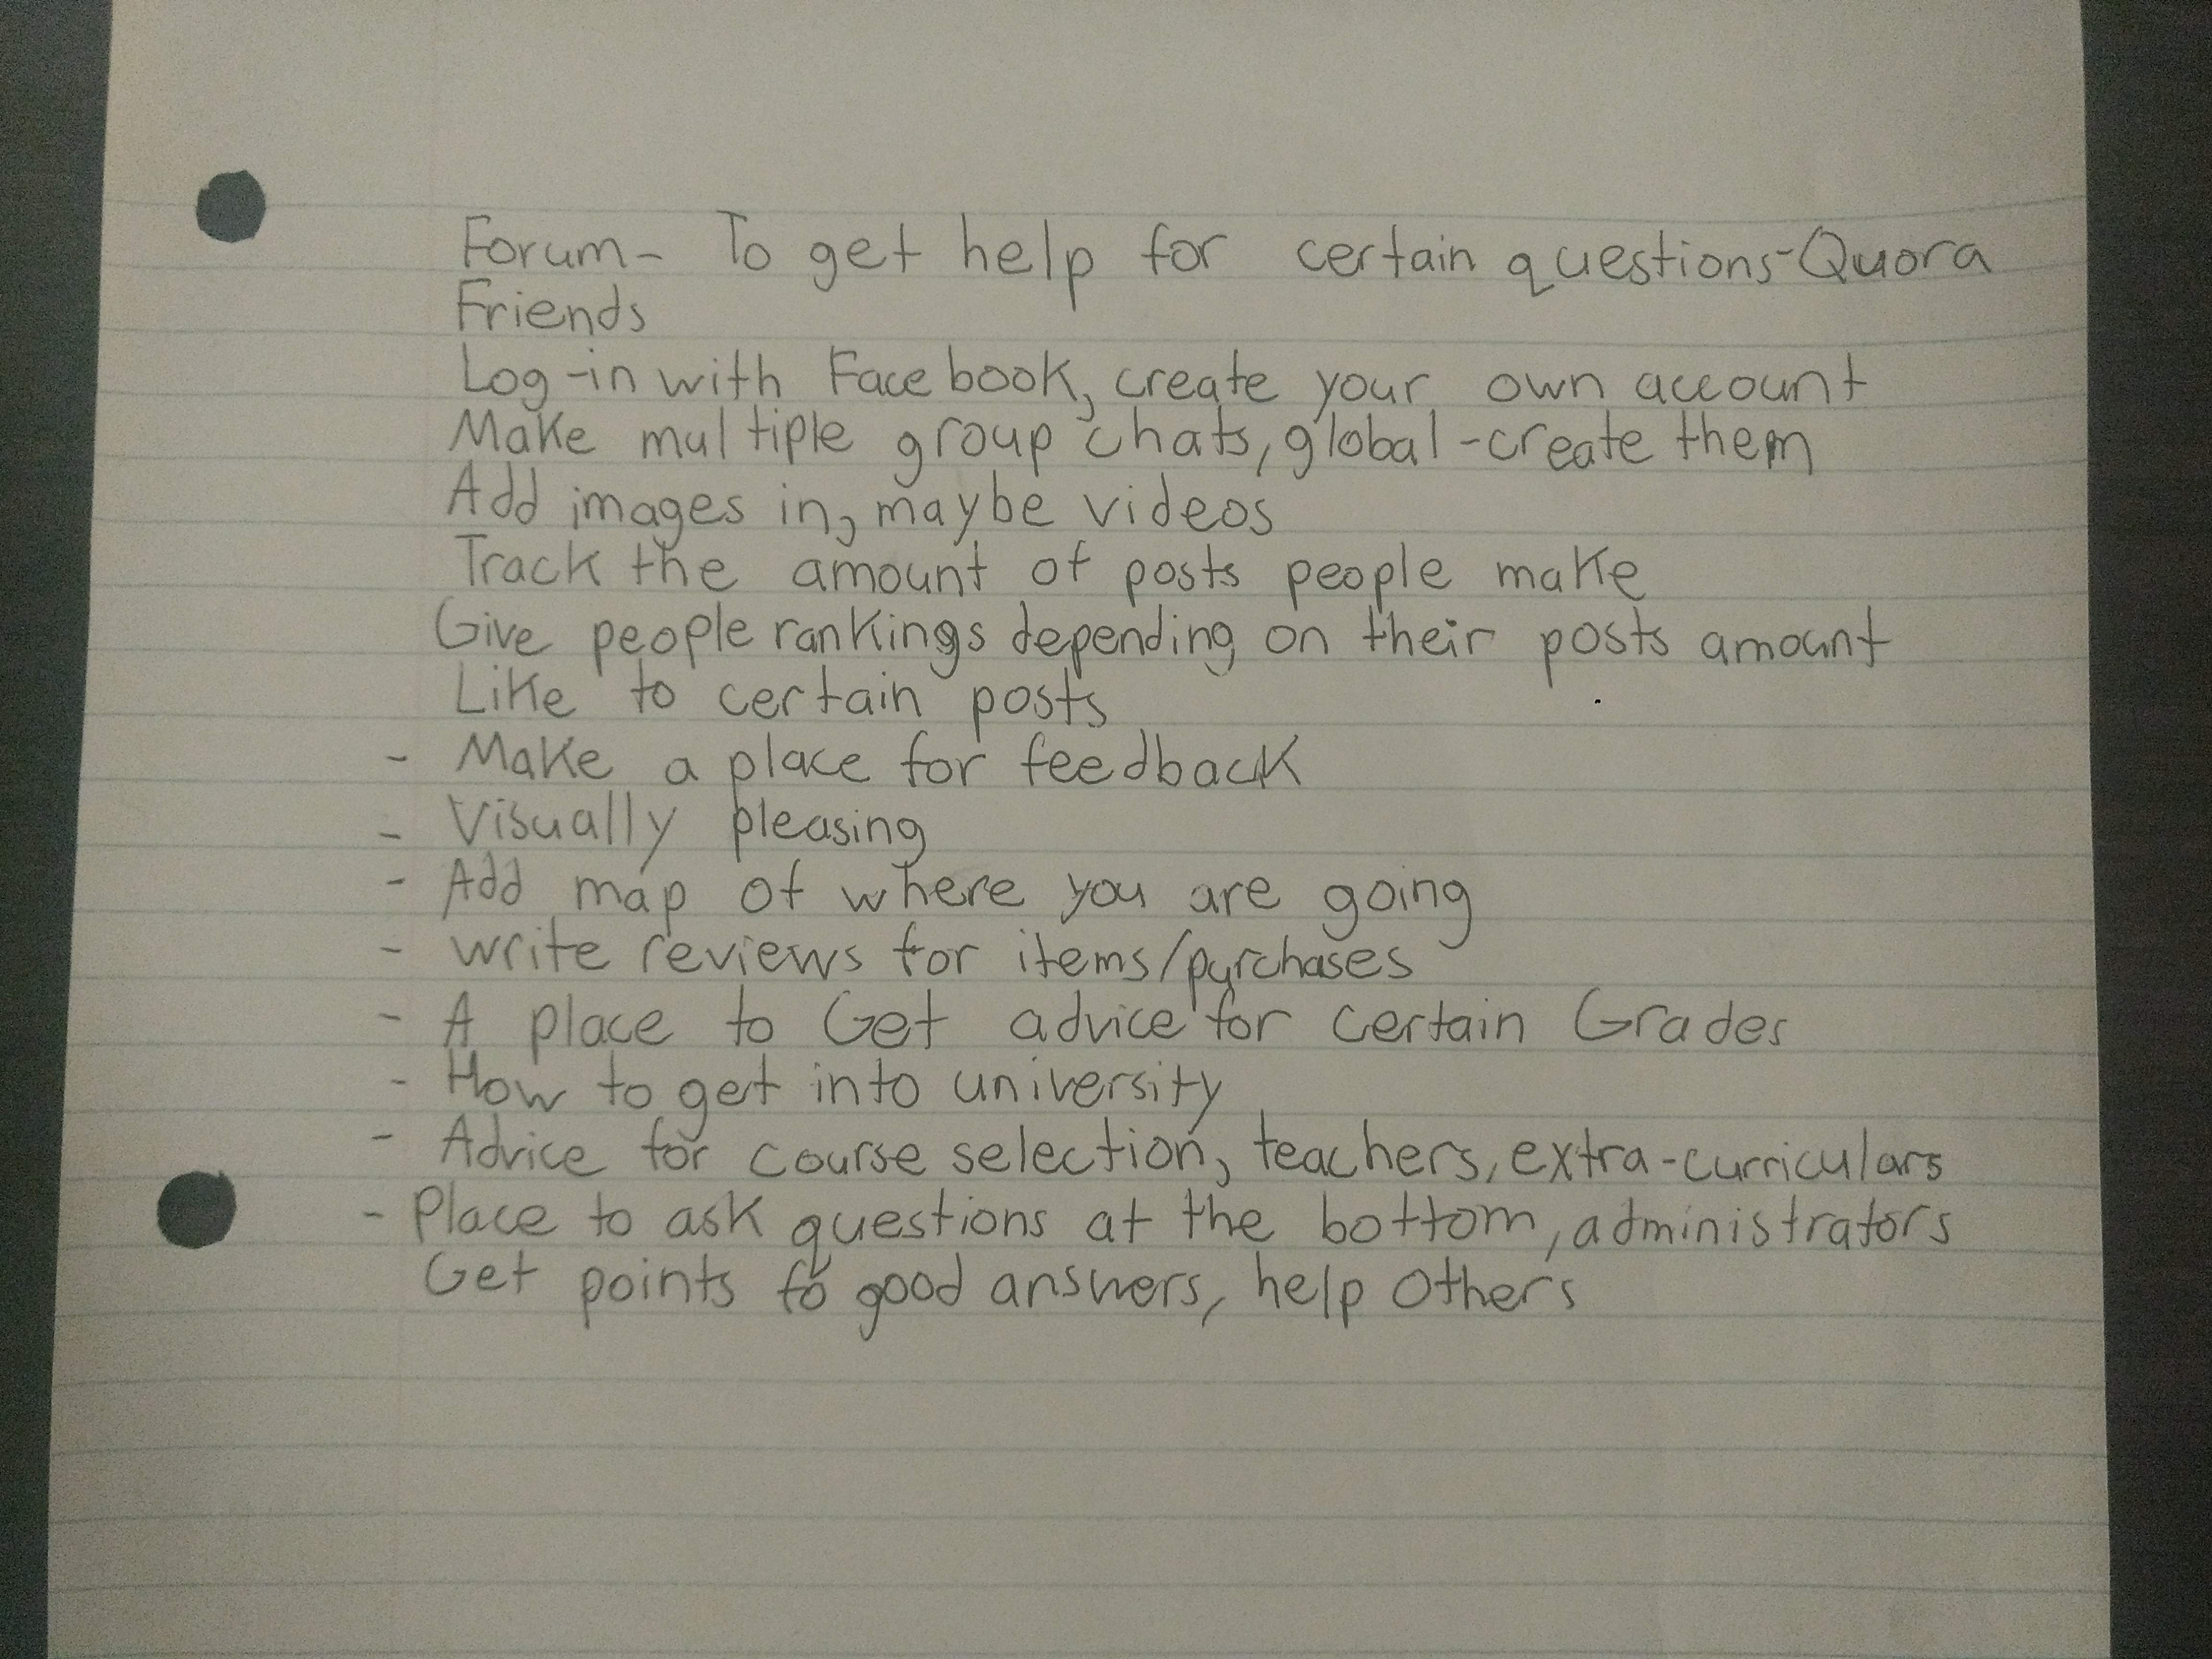 Forum- To get help for certain questions-Quora
Friends
Log-in with Facebook, create your own account
Make multiple group chats, global-create them
Add images in, maybe videos
Track the amount of posts people make
Give people rankings depending on their posts amount
Like to certain posts
- Make a place for feedback
- Visually pleasing
- Add map of where you are going
- write reviews for items/purchases
- A place to Get advice for certain Grades
- How to get into university
- Advice for course selection, teachers, extra-curriculars
- Place to ask questions at the bottom, administrators
Get points fo good answers, help others